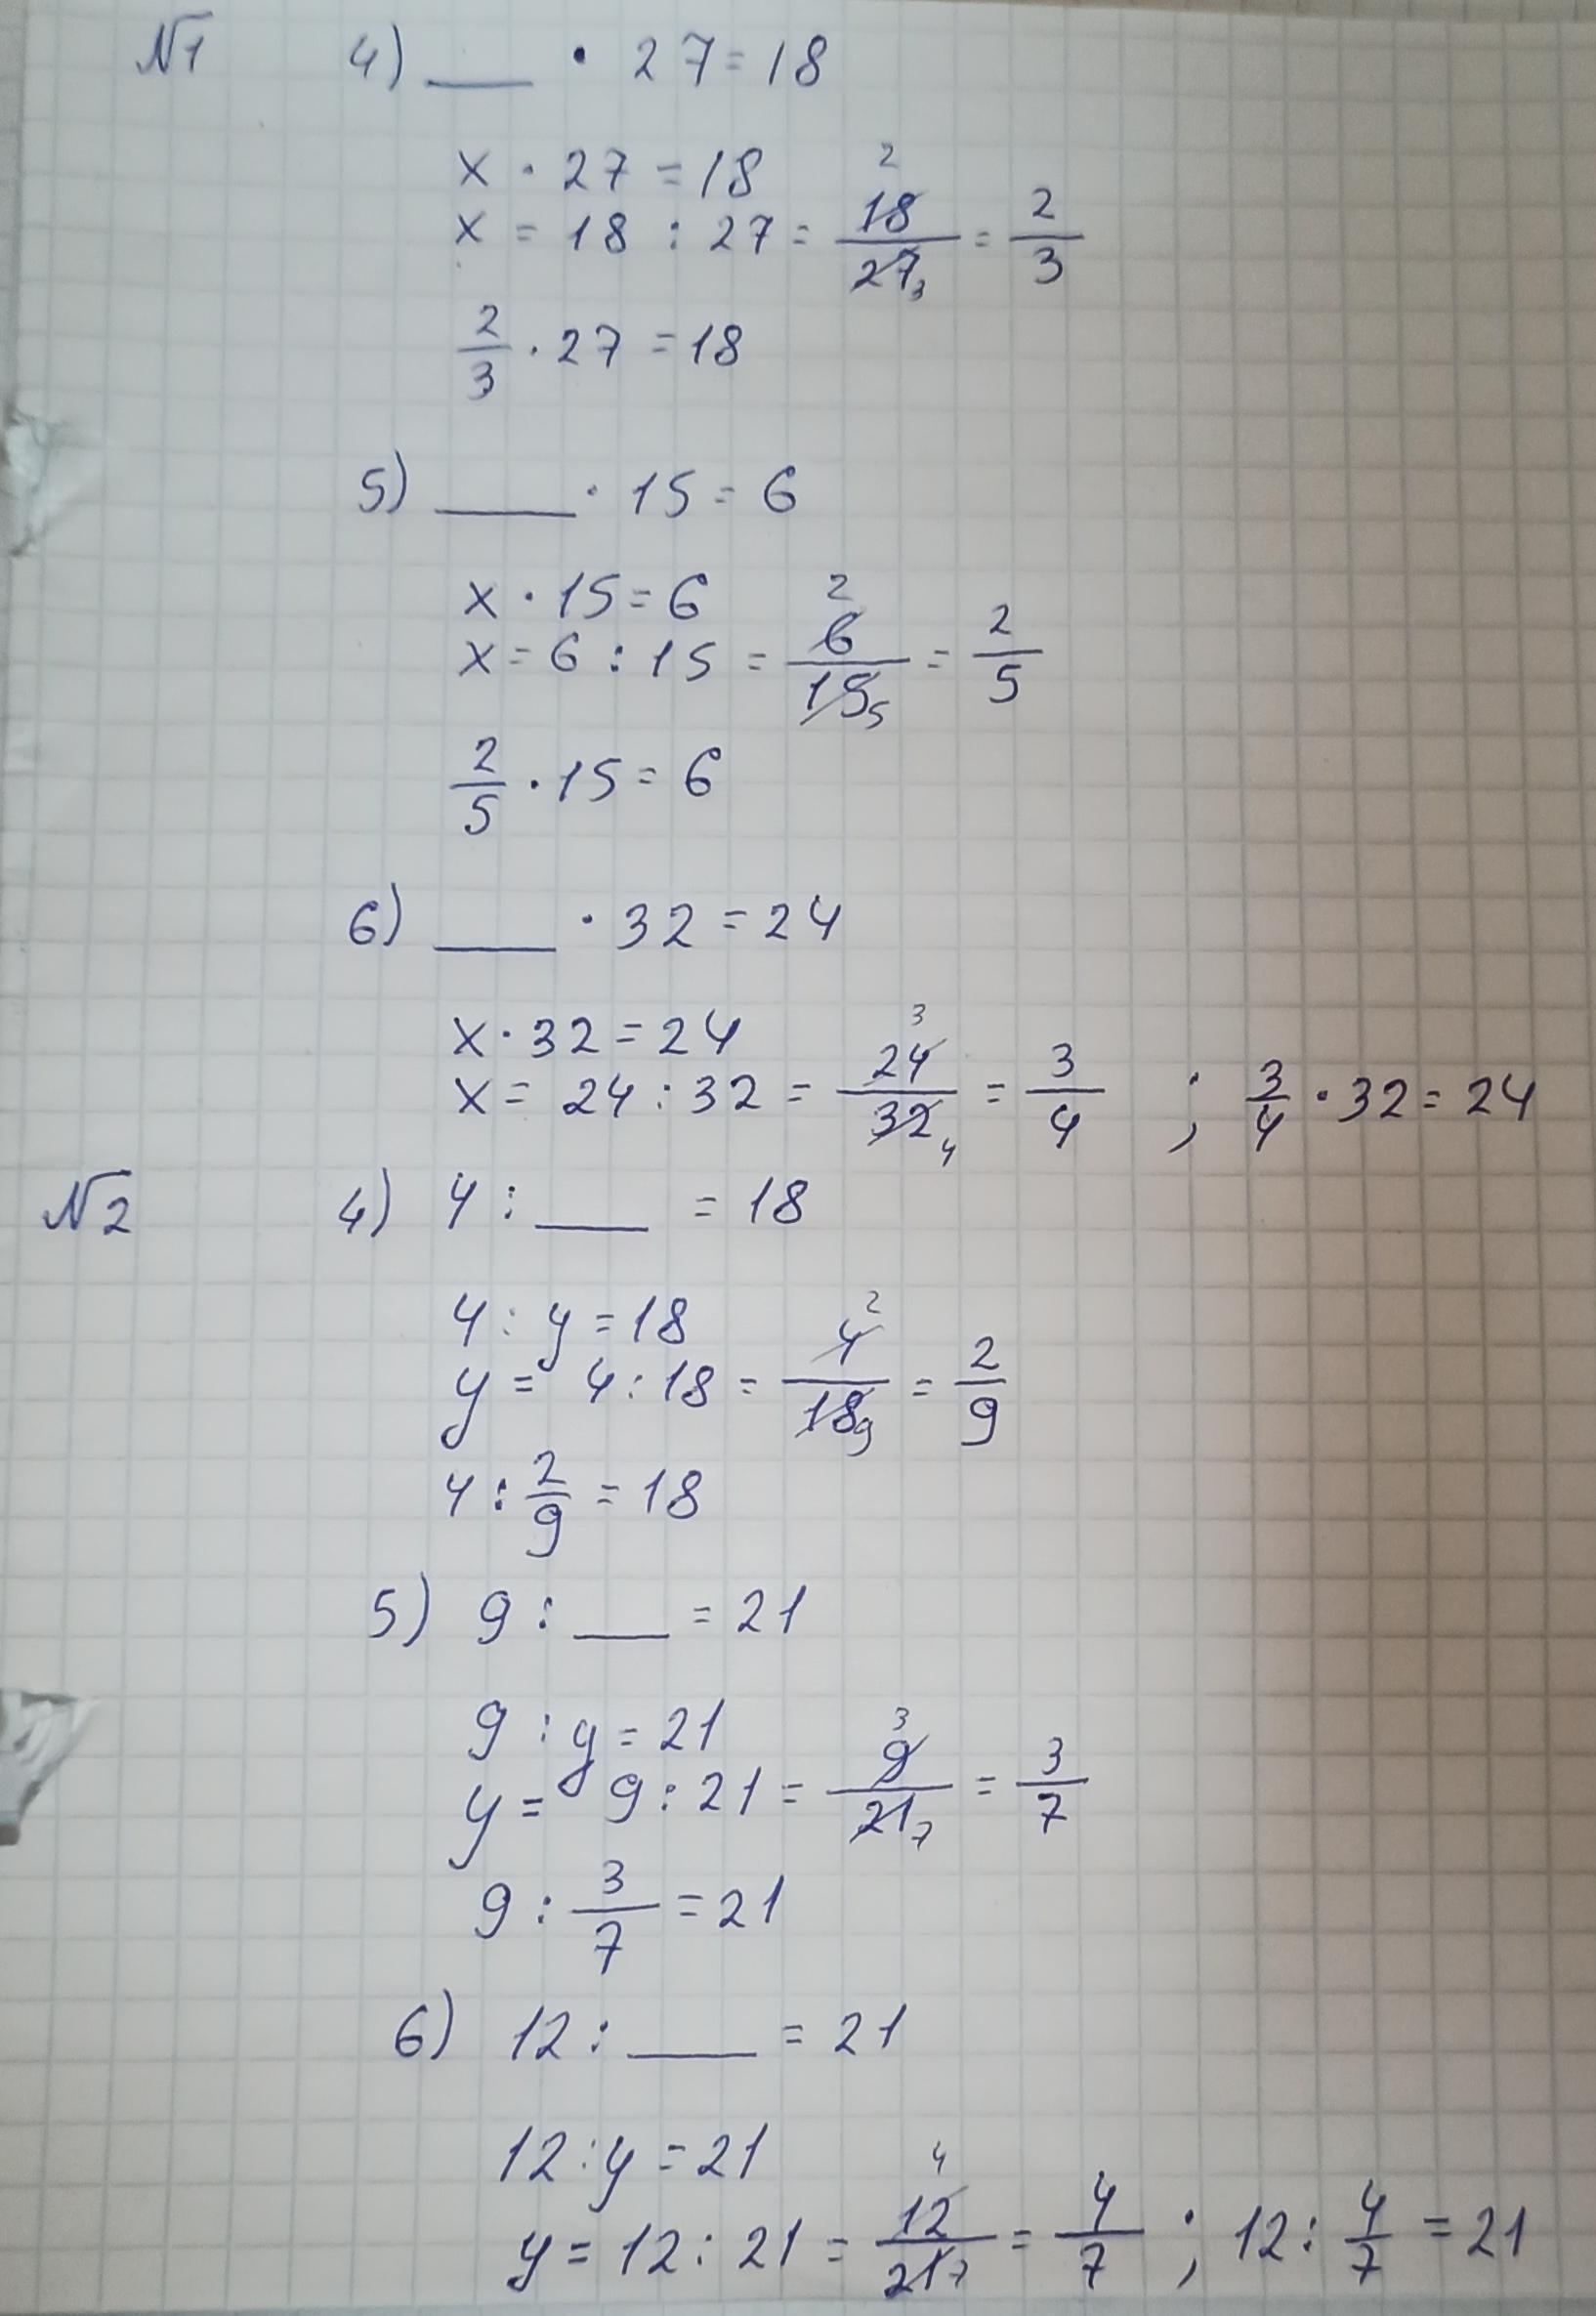 №1 4) ___ · 27 = 18
x · 27 = 18
x = 18 : 27 = 18/27 = 2/3
2 3
2/3 · 27 = 18
5) ___ · 15 = 6
x · 15 = 6
x = 6 : 15 = 6/15 = 2/5
2 5
2/5 · 15 = 6
6) ___ · 32 = 24
x · 32 = 24
x = 24 : 32 = 24/32 = 3/4 ; 3/4 · 32 = 24
3 4
№2 4) 4 : ___ = 18
4 : y = 18
y = 4 : 18 = 4/18 = 2/9
2 9
4 : 2/9 = 18
5) 9 : ___ = 21
9 : y = 21
y = 9 : 21 = 9/21 = 3/7
3 7
9 : 3/7 = 21
6) 12 : ___ = 21
12 : y = 21
y = 12 : 21 = 12/21 = 4/7 ; 12 : 4/7 = 21
4 7